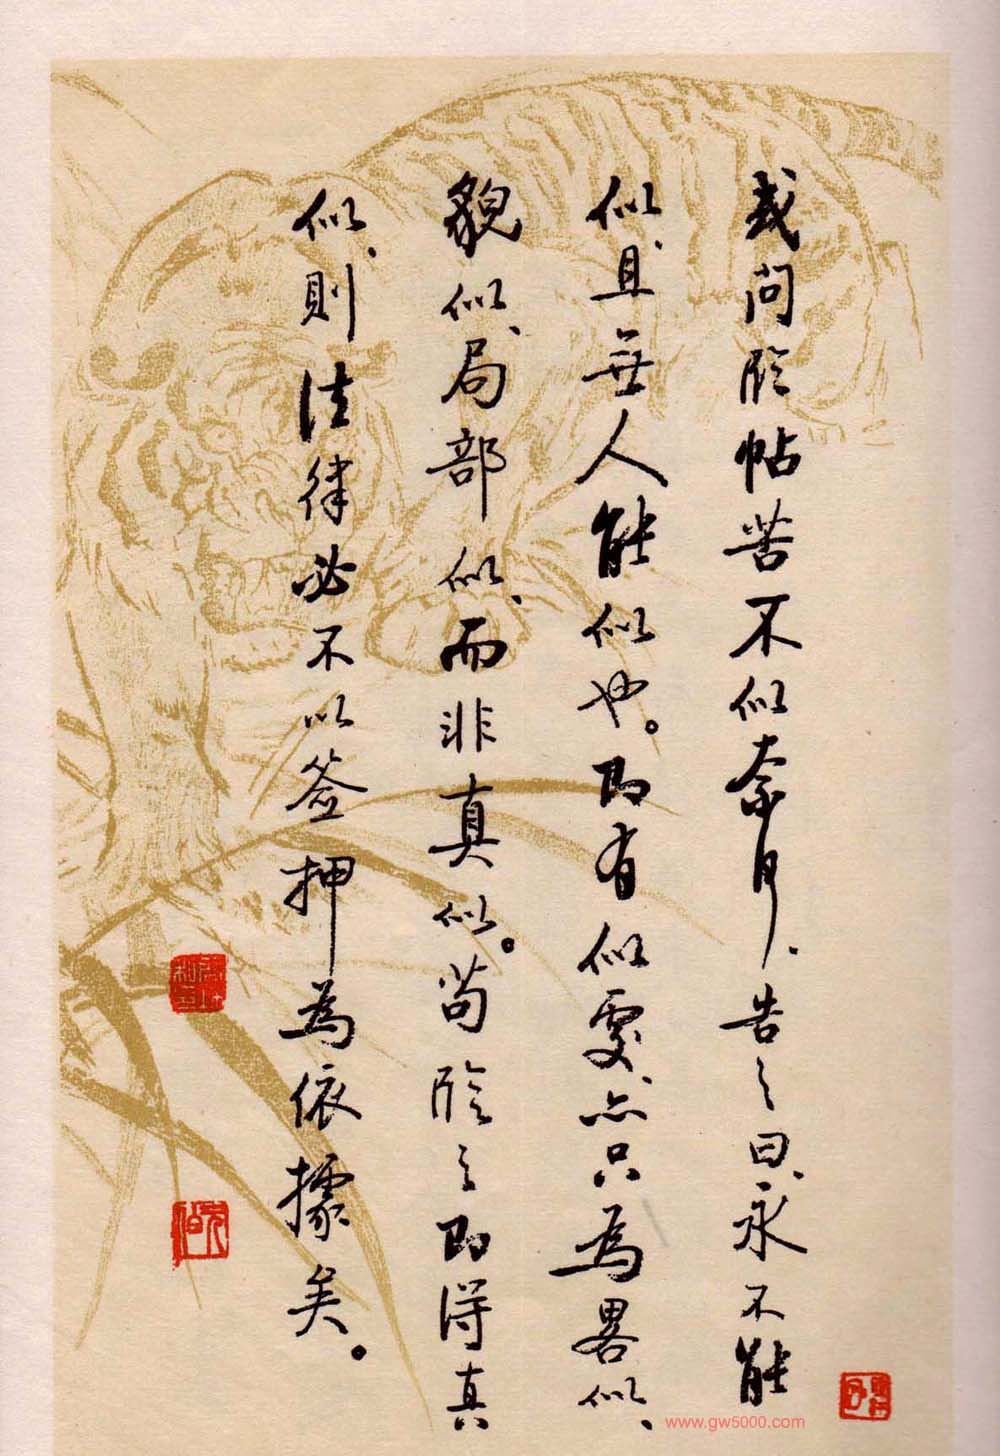 或问临帖苦不似奈何、告之曰、永不能
似、且無人能似也。即有似處、亦只為畧似、
貌似、局部似、而非真似。苟临之即得真
似、則法律必不以簽押為依據矣。
www.gw5000.com